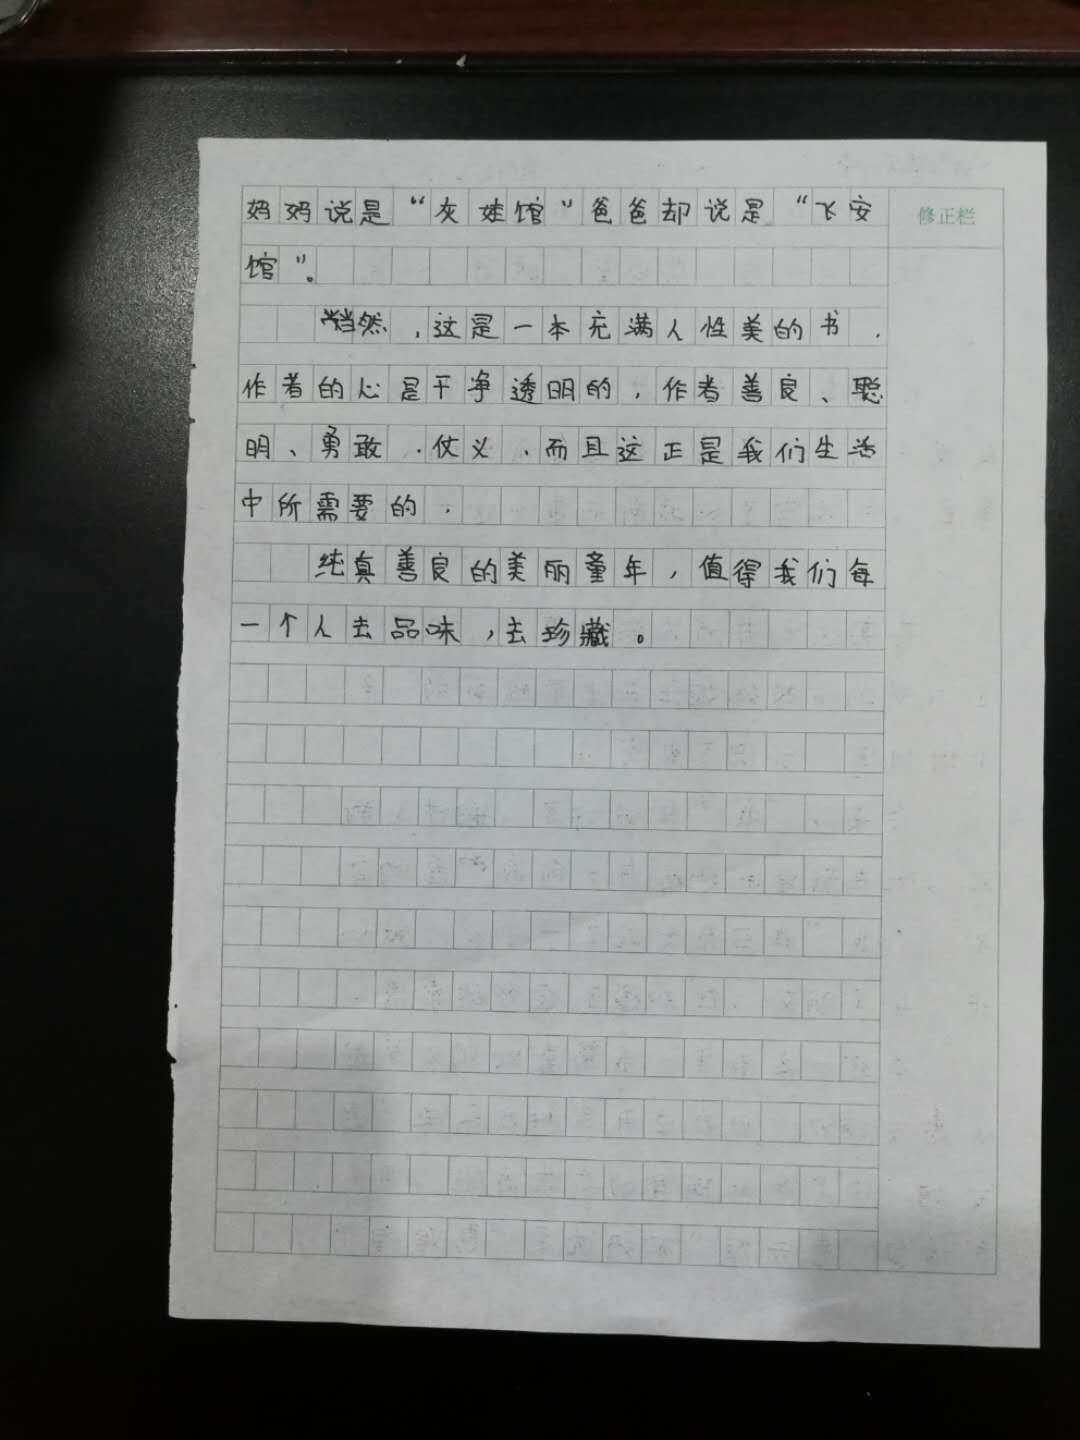 妈妈说是“灰娃馆”爸爸却说是“飞安
修正栏
馆”。
当然，这是一本充满人性美的书．
作者的心是干净透明的，作者善良、聪
明、勇敢．仗义．而且这正是我们生活
中所需要的．
纯真善良的美丽童年，值得我们每
一个人去品味，去珍藏。